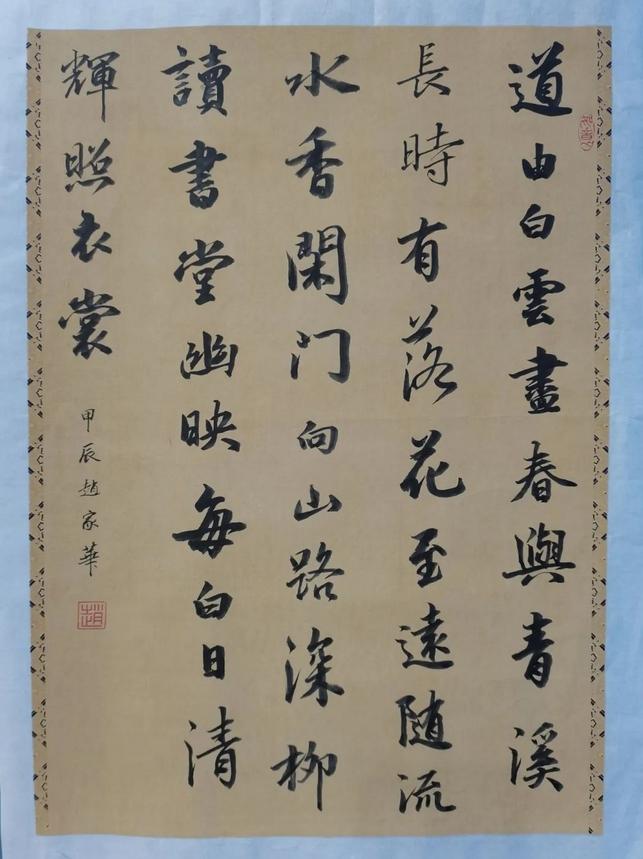 道由白雲盡春與青溪
長時有落花至遠随流
水香閑門向山路深柳
讀書堂幽映每白日清
輝照衣裳
甲辰趙家華
趙